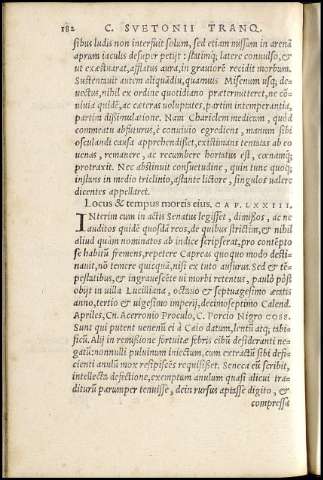 182 C. SVETONII TRANQ.
sibus ludis non interfuit solum, sed etiam missum in arenā
aprum iaculis desuper petijt: statimq; latere conuulso, &
ut exæstuarat, afflatus aura, in grauiorē recidit morbum.
Sustentauit tamen aliquādiu, quamuis Misenum usq; de-
uectus, nihil ex ordine quotidiano prætermitteret, ne cō-
uiuia quidē, ac cæteras uoluptates, partim intemperantia,
partim dissimulatione. Nam Chariclem medicum, quòd
commeatu abfuturus, è conuiuio egrediens, manum sibi
osculandi causa apprehendisset, existimans tentatas ab eo
uenas, remanere, ac recumbere hortatus est, cœnamq;
protraxit. Nec abstinuit consuetudine, quin tunc quoq;
instans in medio triclinio, astante lictore, singulos ualere
dicentes appellaret.
Locus & tempus mortis eius. CAP. LXXIII.
INterim cum in actis Senatus legisset, dimissos, ac ne
auditos quidē quosdā reos, de quibus strictim, & nihil
aliud quàm nominatos ab indice scripserat, pro contēpto
se habitū fremens, repetere Capreas quoquo modo desti-
nauit, nō temere quicquā, nisi ex tuto ausurus. Sed & tē-
pestatibus, & ingrauescēte ui morbi retentus, paulò pòst
obijt in uilla Luculliana, octauo & septuagesimo ætatis
anno, tertio & uigesimo imperij, decimoseptimo Calend.
Apriles, Cn. Acerronio Proculo, C. Porcio Nigro COSS.
Sunt qui putent uenenū ei à Caio datum, lentū atq; tabi-
ficū. Alij in remissione fortuitæ febris cibū desideranti ne-
gatū: nonnulli puluinum iniectum, cum extractū sibi defi-
cienti anulū mox resipiscēs requisisset. Seneca eū scribit,
intellecta defectione, exemptum anulum quasi alicui tra-
diturū parumper tenuisse, dein rursus aptasse digito, &
compressa